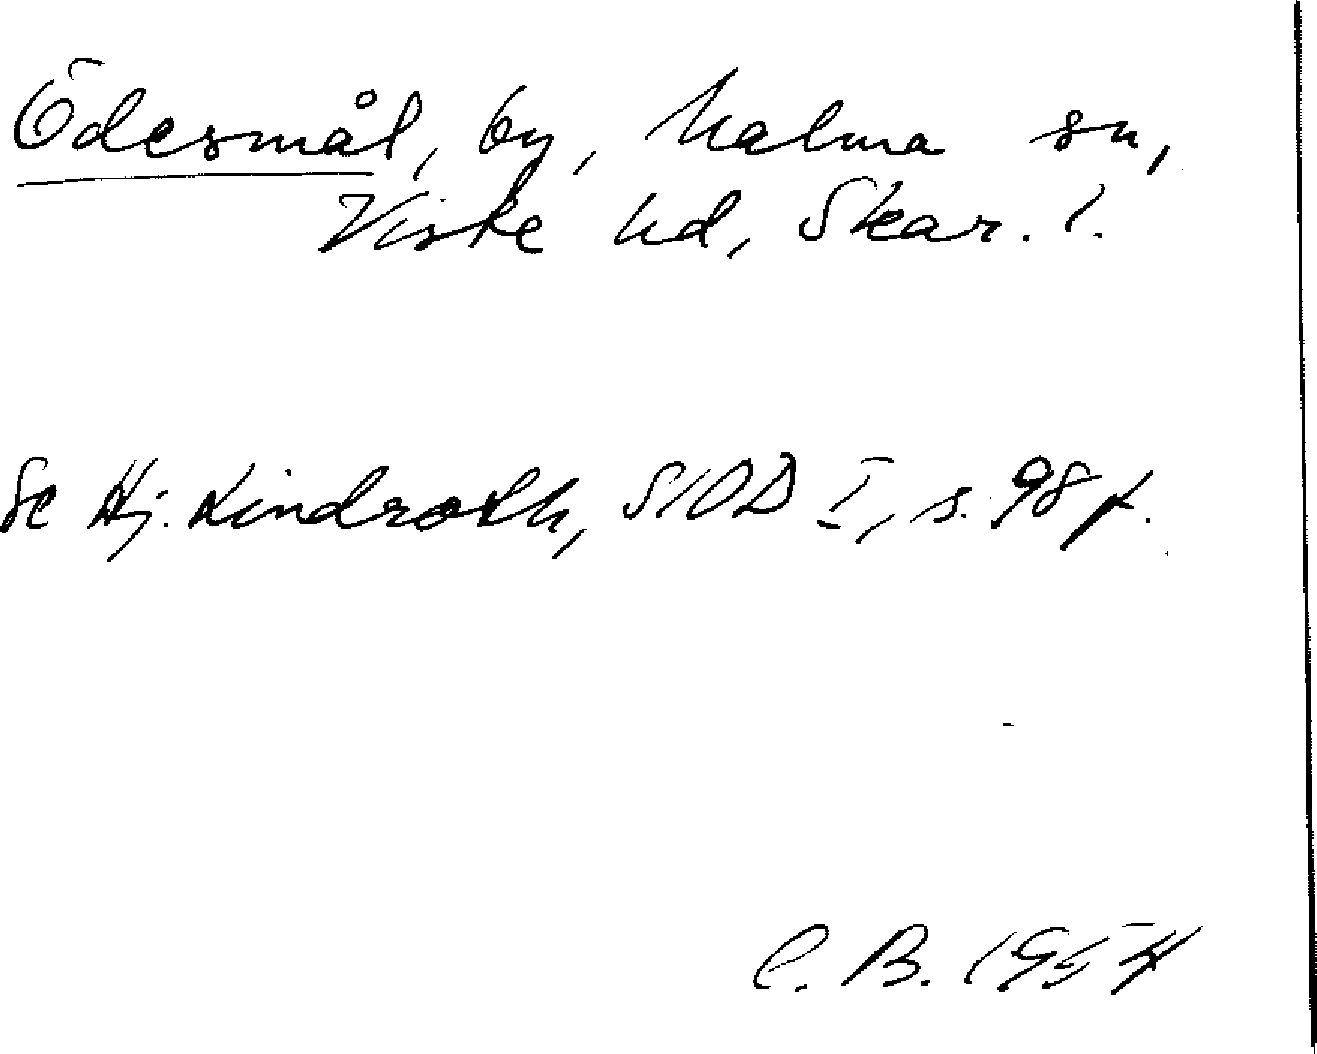 Ödesmål, by, Malma sn,
Viste hd, Skar. l.
Se Hj. Lindroth, SIOD I, s. 98 f.
C. B. 1954